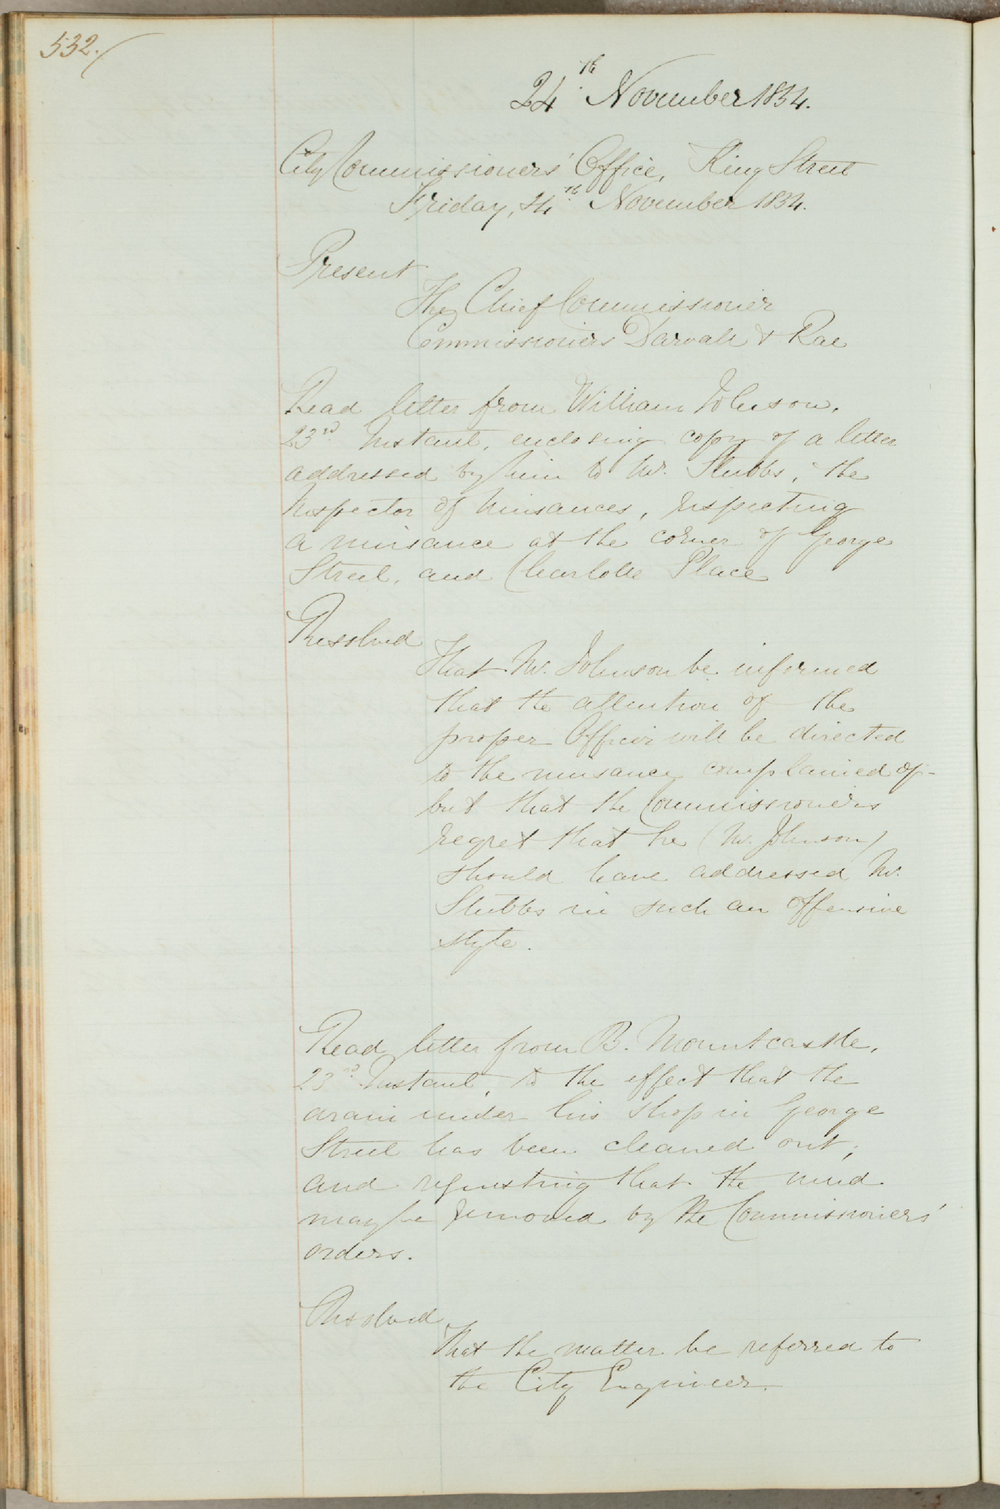 532.
24th November 1854.
City Commissioners' Office, King Street
Friday, 24th November 1854.
Present
The Chief Commissioner
Commissioners Darvall & Rae
Read letter from William Johnson,
23rd Instant, enclosing copy of a letter
addressed by him to Mr. Stubbs, the
Inspector of Nuisances, respecting
a nuisance at the corner of George
Street, and Charlotte Place
Resolved
That Mr. Johnson be informed
that the attention of the
proper Officer will be directed
to the nuisance complained of-
but that the Commissioners
regret that he (Mr. Johnson)
should have addressed Mr.
Stubbs in such an offensive
style.
Read letter from B. Mountcastle,
23rd Instant, to the effect that the
drain under his shop in George
Street has been cleaned out;
and requesting that the mud
may be removed by the Commissioners'
orders.
Resolved
That the matter be referred to
the City Engineer.